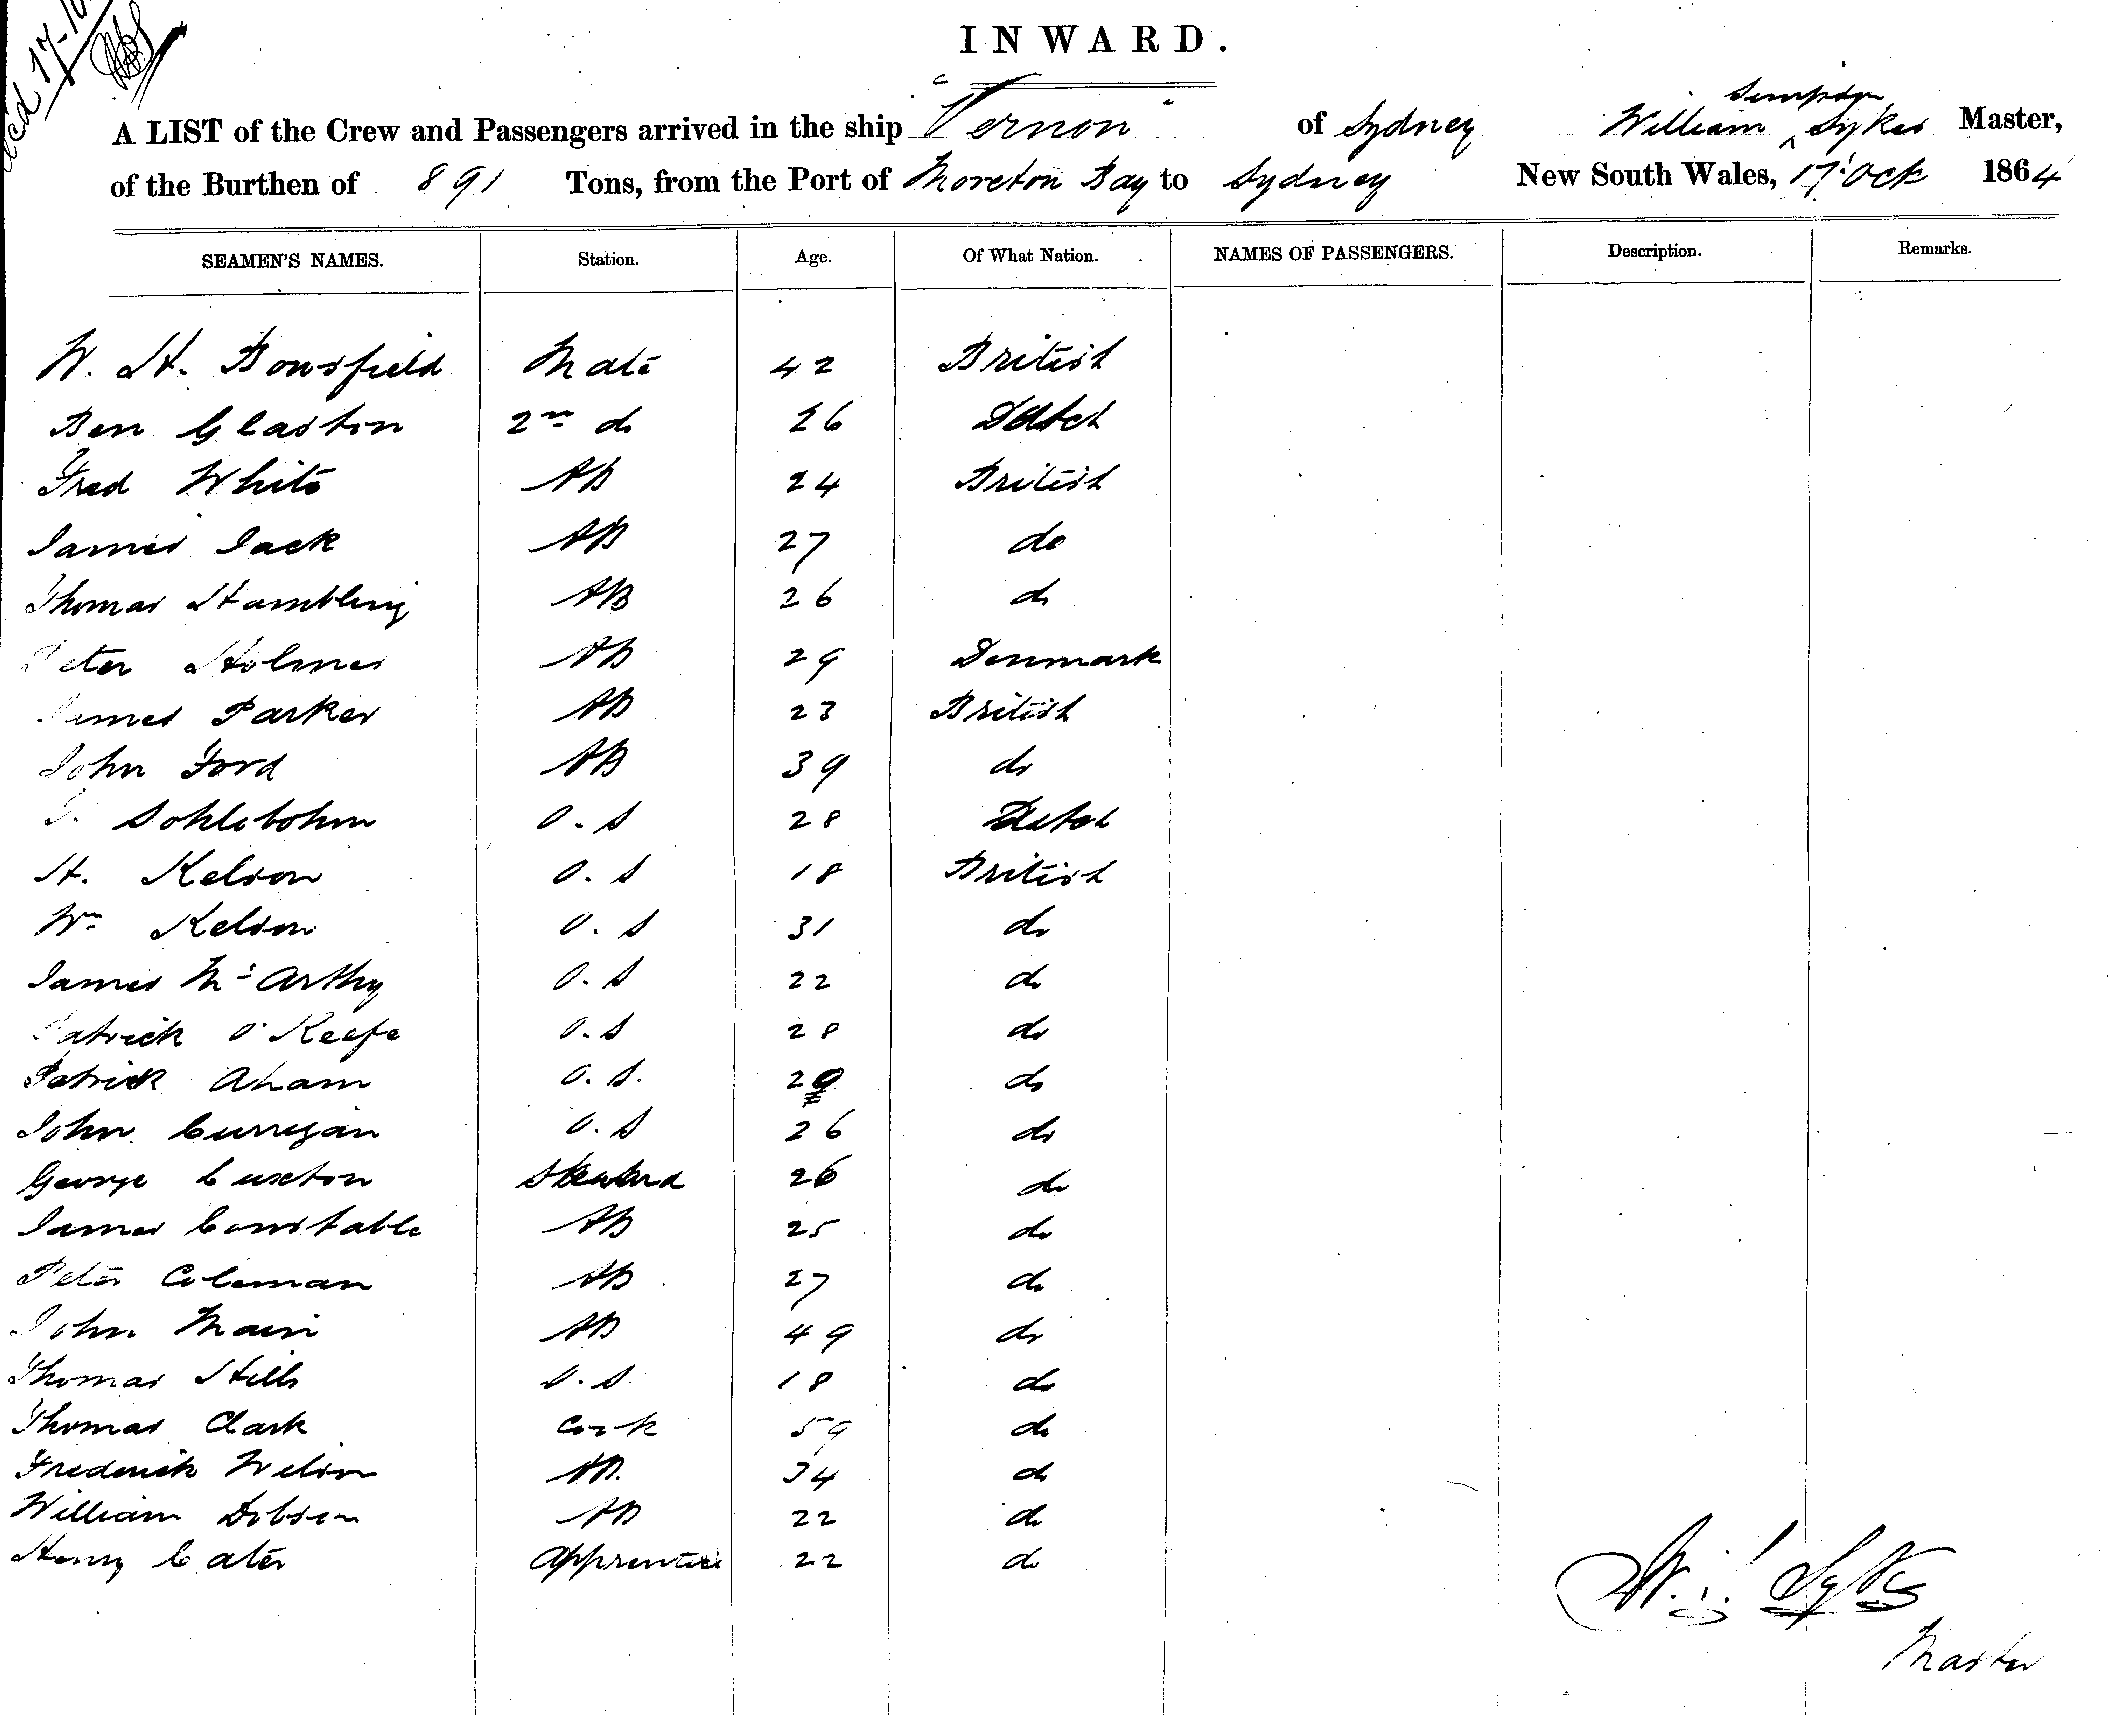 17-10
INWARD.
A LIST of the Crew and Passengers arrived in the ship "Vernon" of Sydney William ^ Simpson Sykes Master,
of the Burthen of 891 Tons, from the Port of Moreton Bay to Sydney New South Wales, 17 Oct 1864
SEAMEN'S NAMES. Station. Age. Of What Nation. NAMES OF PASSENGERS. Description. Remarks.
W. H. Bousfield Mate 42 British
Ben Glaston 2nd do 26 Dutch
Fred White AB 24 British
James Jack AB 27 do
Thomas Hambling AB 26 do
Peter Holmes AB 29 Denmark
James Parker AB 23 British
John Ford AB 39 do
Sohlebohm O.S 28 Dutch
H. Kelson O.S 18 British
Wm Kelson O.S 31 do
James McArthy O.S 22 do
Patrick O'Keefe O.S 28 do
Patrick Aham O.S. 29 do
John Currigan O.S 26 do
George Cuxton Steward 26 do
James Constable AB 25 do
Peter Coleman AB 27 do
John Main AB 49 do
Thomas Hills O.S 18 do
Thomas Clark Cook 59 do
Frederick Welson AB. 34 do
William Dobson AB 22 do
Henry Cater Apprentice 22 do
W. S. Sykes
Master